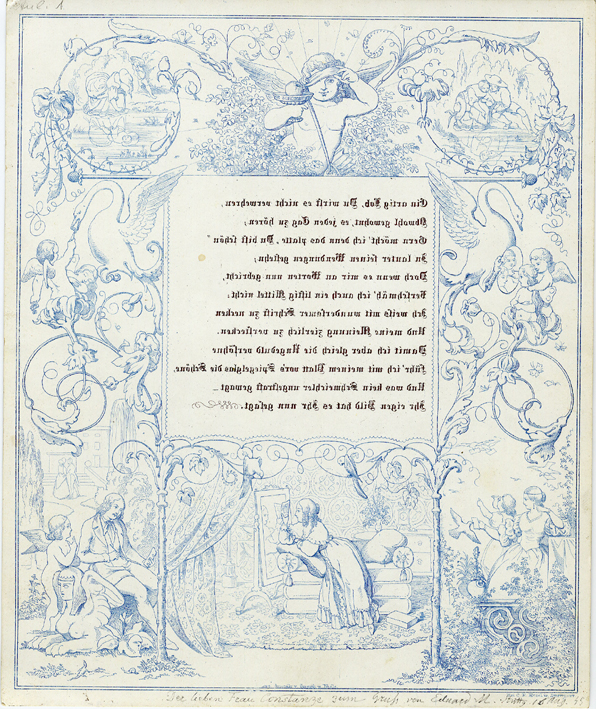 Ein artig Lob, Du wirst es nicht verwehren,
Obwohl gewohnt, es jeden Tag zu hören;
Gern möcht' ich denn das platte „Du bist schön"
In lauter feinen Wendungen gestehn;
Doch wenn es mir an Worten nun gebricht,
Verschmäh' ich auch ein listig Mittel nicht;
Ich weiß mit wundersamer Schrift zu necken
Und meine Meinung zierlich zu verstecken.
Damit ich aber gleich die Ungeduld versöhne
Führ' ich mit meinem Blatt vors Spiegelglas die Schöne,
Und was kein Schmeichler ungestraft gewagt –
Ihr eigen Bild hat es Ihr nun gesagt.
Der lieben Frau Constanze zum Gruß von Eduard M. 16 Aug. 55